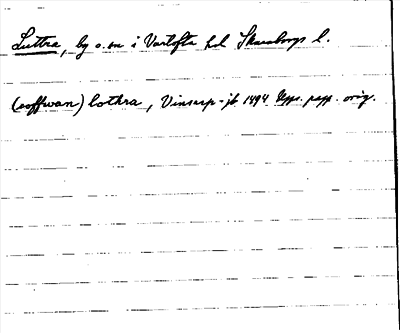 Luttra, by o. sn i Vartofta hd Skaraborgs l.
(offwan) lothra, Vinsarp-jb 1494 Upps. papp. orig.